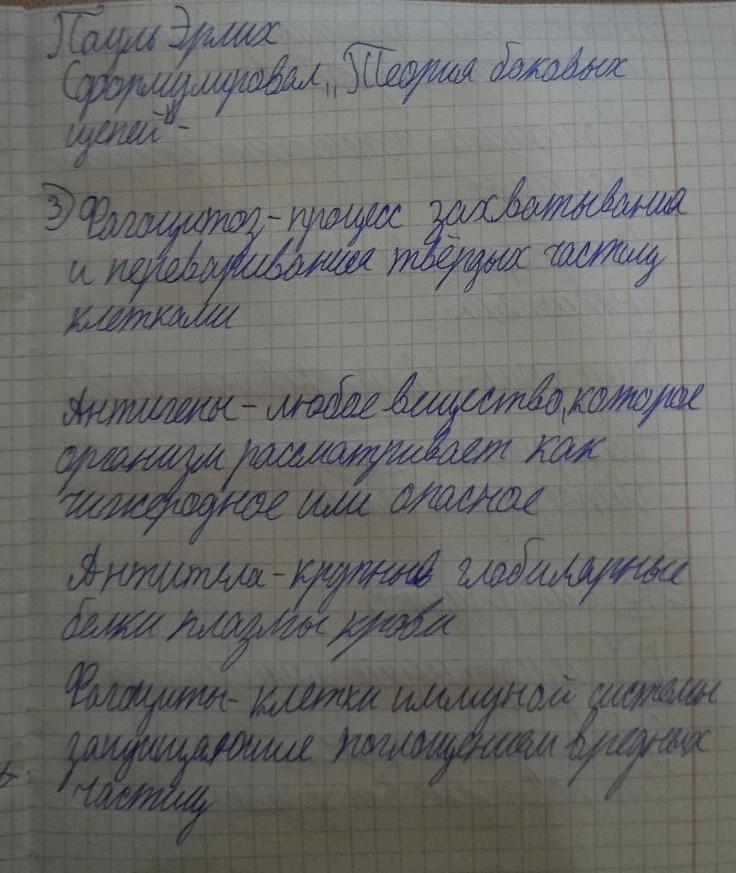 Пауль Эрлих
Сформулировал „Теория боковых
цепей" -
3) Фагоцитоз - процесс захватывания
и переваривания твёрдых частиц
клетками
Антигены - любое вещество, которое
организм рассматривает как
чужеродное или опасное
Антитела - крупные глобулярные
белки плазмы крови
Фагоциты - клетки иммуной системы
защищающие поглощением вредных
частиц